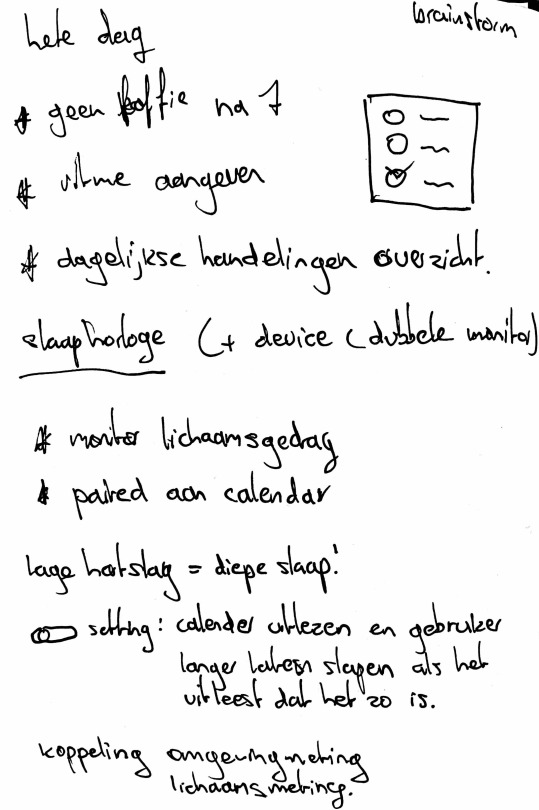 brainstorm
hele dag
* geen koffie na 7
* ritme aangeven
* dagelijkse handelingen overzicht.
slaaphorloge (+ device (dubbele monitor)
* monitor lichaamsgedrag
* paired aan calendar
lage hartslag = diepe slaap!
setting: calender uitlezen en gebruiker
langer laten slapen als het
uitleest dat het zo is.
koppeling omgevingmeting
lichaamsmeting.